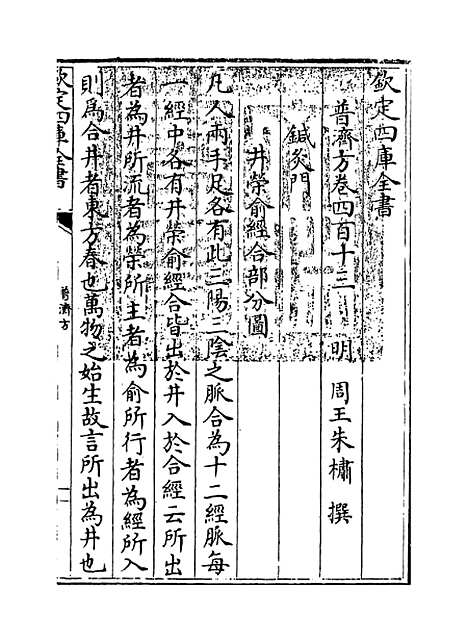 欽定四庫全書
普濟方卷四百十三　明　周王朱橚　撰
鍼灸門
井榮俞經合部分圖
凡人兩手足各有此三陽三陰之脈合為十二經脈每
一經中各有井榮俞經合皆出於井入於合經云所出
者為井所流者為榮所主者為俞所行者為經所入
則為合井者東方春也萬物之始生故言所出為井也
欽定四庫全書
普濟方
一